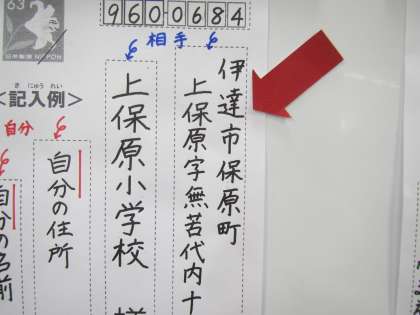 63
NIPPON
9600684
相手
伊達市保原町
上保原字無苦代内十
上保原小学校 様
<記入例>
きにゅうれい
自分
自分の住所
自分の名前